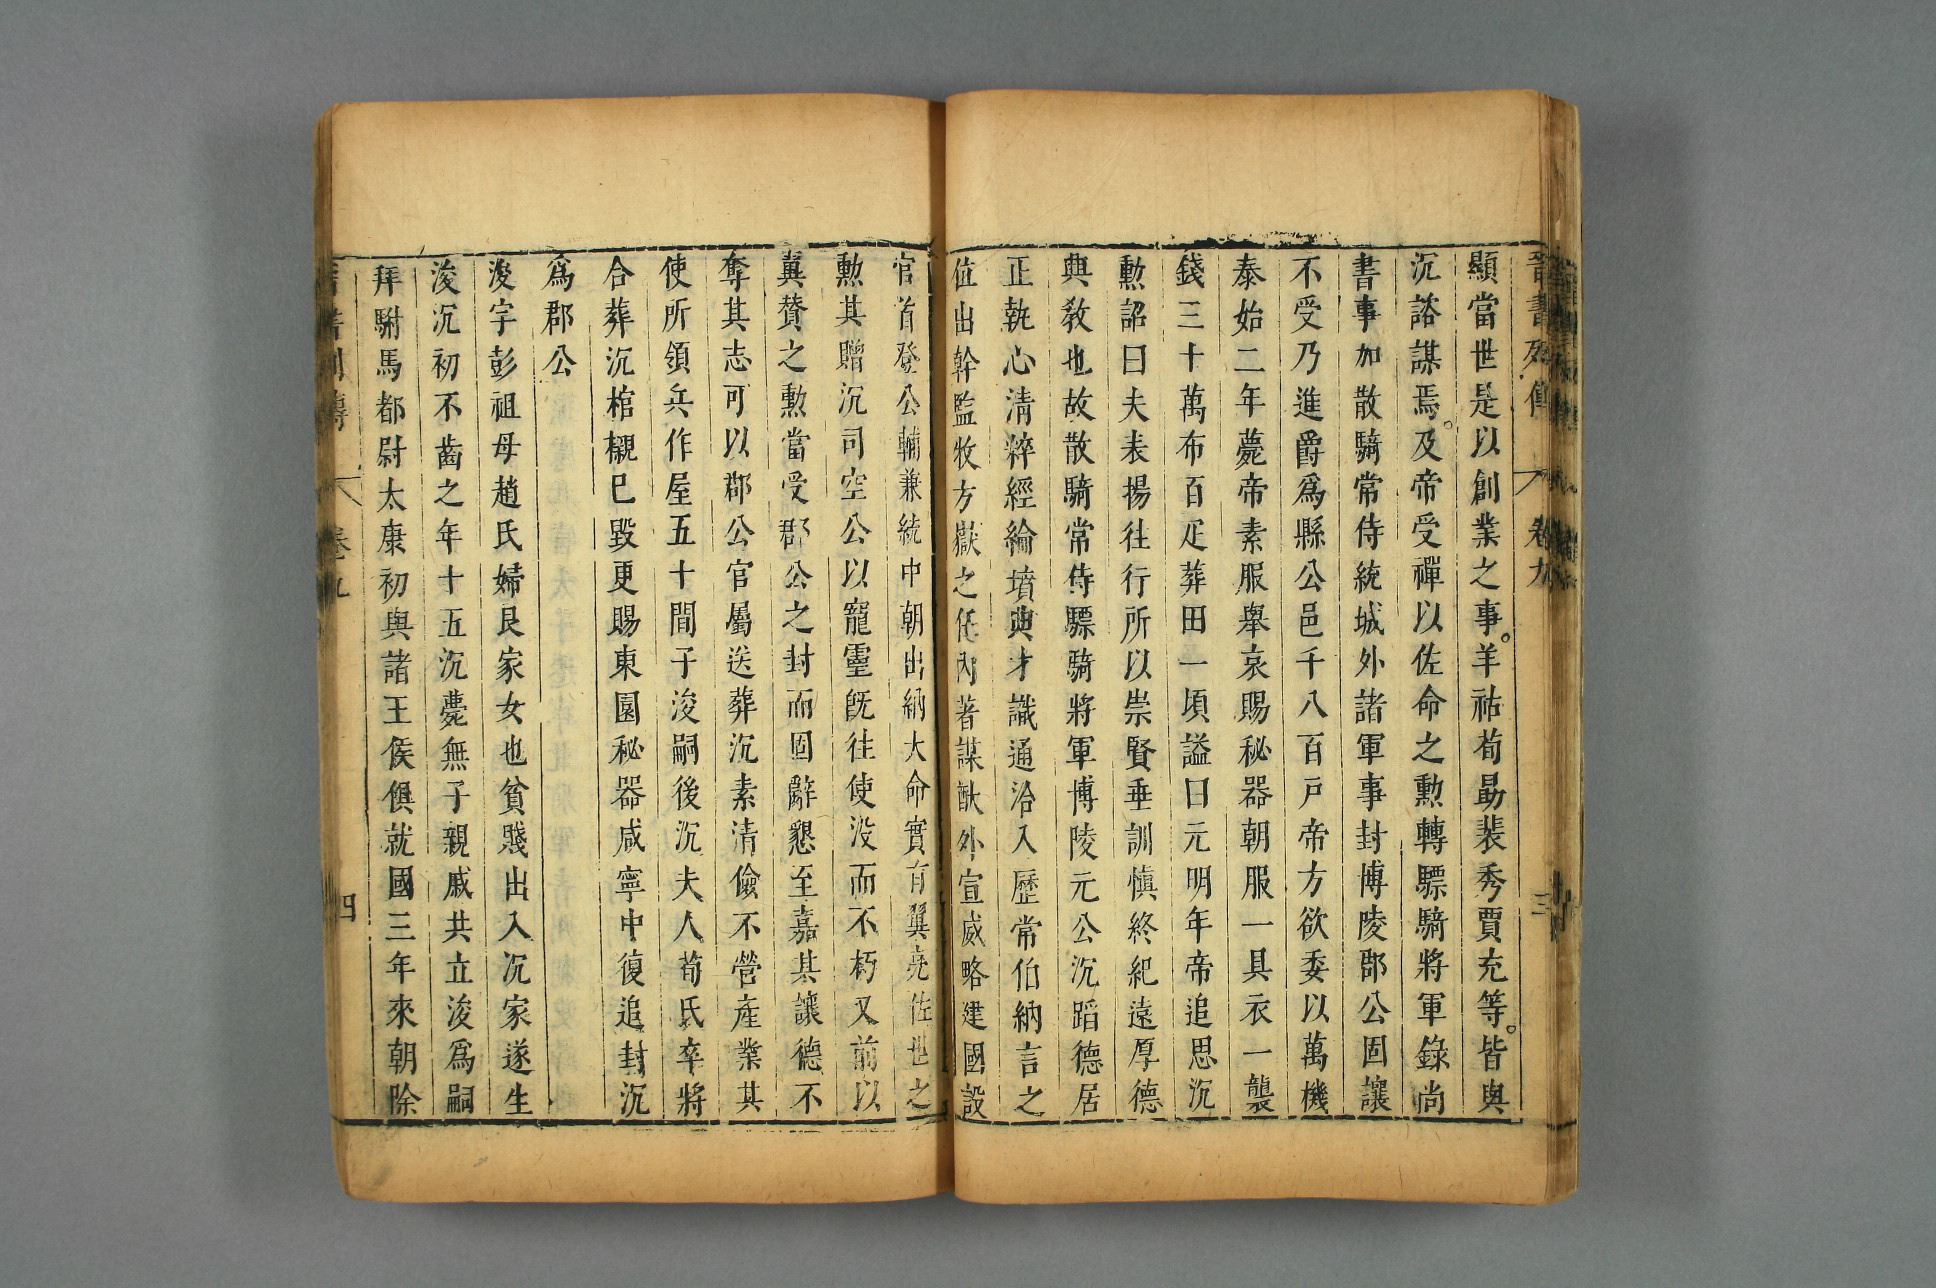 晉書列傳 卷九 三
顯當世是以創業之事羊祜荀勗裴秀賈充等皆與
沉諮謀焉及帝受禪以佐命之勲轉驃騎將軍錄尚
書事加散騎常侍統城外諸軍事封博陵郡公固讓
不受乃進爵爲縣公邑千八百戸帝方欲委以萬機
泰始二年薨帝素服舉哀賜秘器朝服一具衣一襲
錢三十萬布百疋葬田一頃謚曰元明年帝追思沉
勲詔曰夫表揚往行所以崇賢垂訓慎終紀遠厚德
典教也故散騎常侍驃騎將軍博陵元公沉蹈德居
正執心清粹經綸墳典才識通洽入歷常伯納言之
位出幹監牧方嶽之任內著謀猷外宣威略建國設
官首登公輔兼統中朝出納大命實有翼亮佐世之
勲其贈沉司空公以寵靈旣往使没而不朽又前以
翼賛之勲當受郡公之封而固辭懇至嘉其讓德不
奪其志可以郡公官屬送葬沉素清儉不營產業其
使所領兵作屋五十間子浚嗣後沉夫人荀氏卒將
合葬沉棺櫬已毀更賜東園秘器咸寧中復追封沉
爲郡公
浚字彭祖母趙氏婦良家女也貧賤出入沉家遂生
浚沉初不齒之年十五沉薨無子親戚共立浚爲嗣
拜駙馬都尉太康初與諸王侯俱就國三年來朝除
晉書列傳 卷九 四